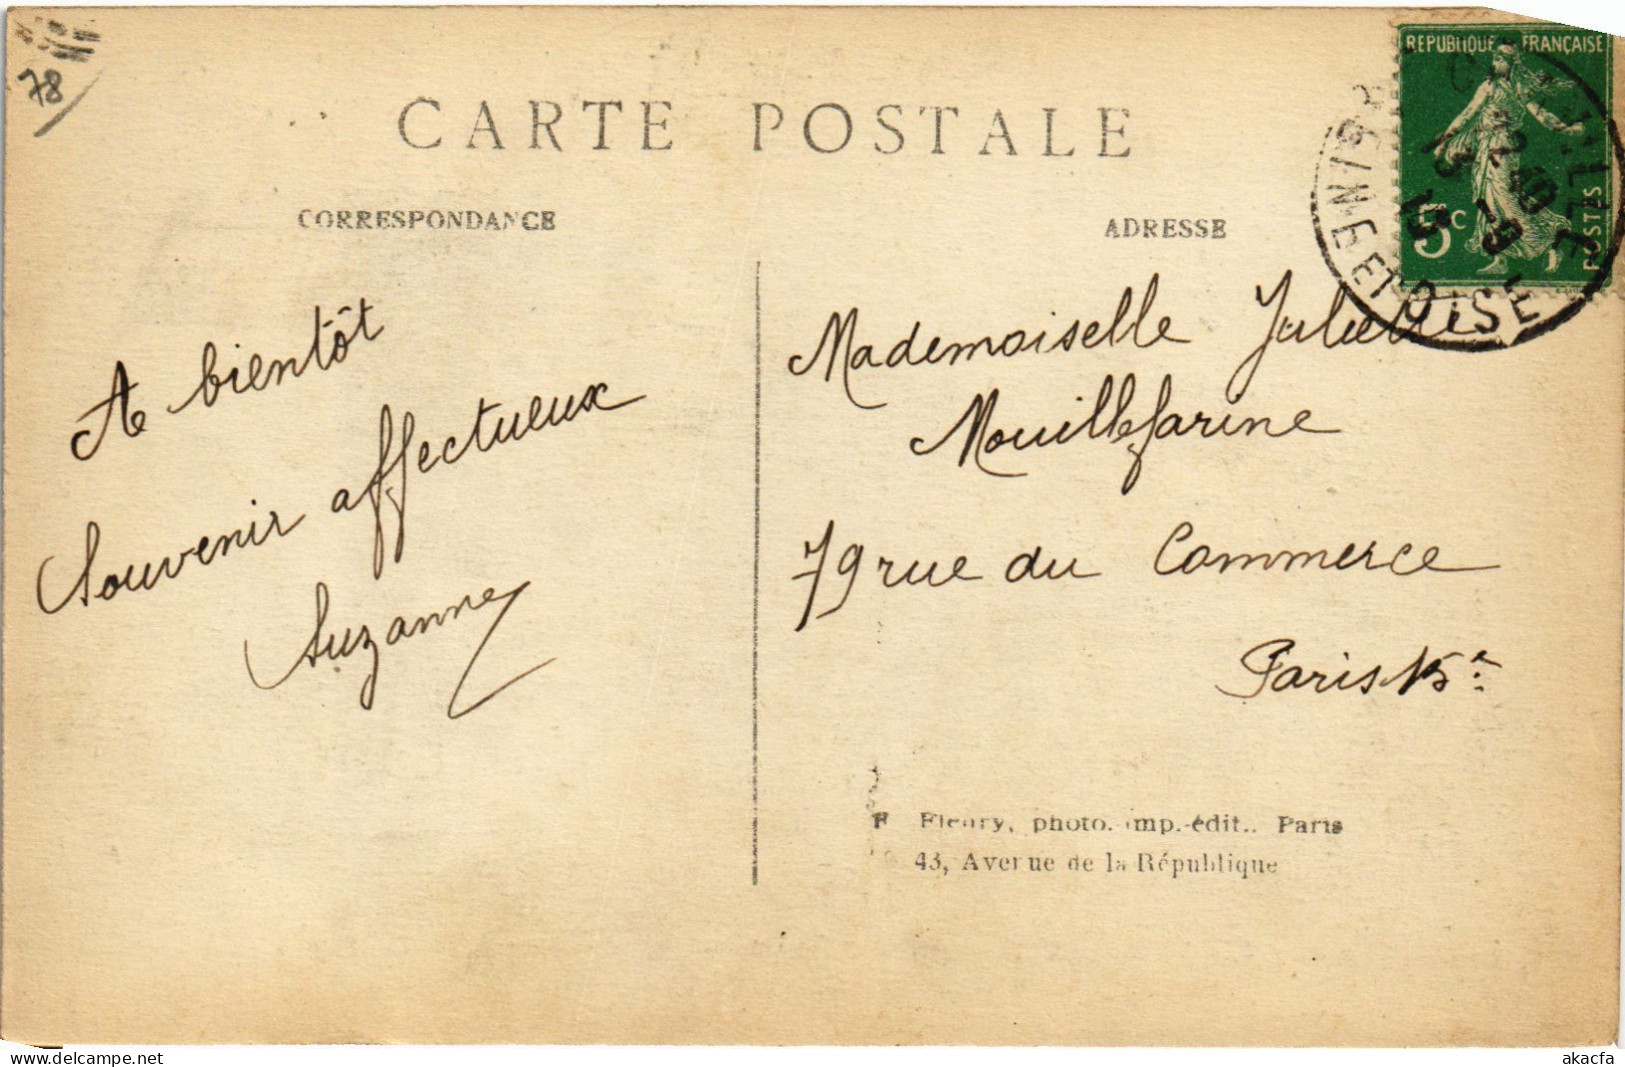 78
CARTE POSTALE
CORRESPONDANCE
ADRESSE
REPUBLIQUE FRANÇAISE
5c
POSTES
SEINE ET OISE
A bientôt
Souvenir affectueux
Suzanne
Mademoiselle Juliette
Mouillefarine
79 rue du Commerce
Paris 15e
F Fleury, photo. imp.-édit.. Paris
43, Avenue de la République
www.delcampe.net
akacfa